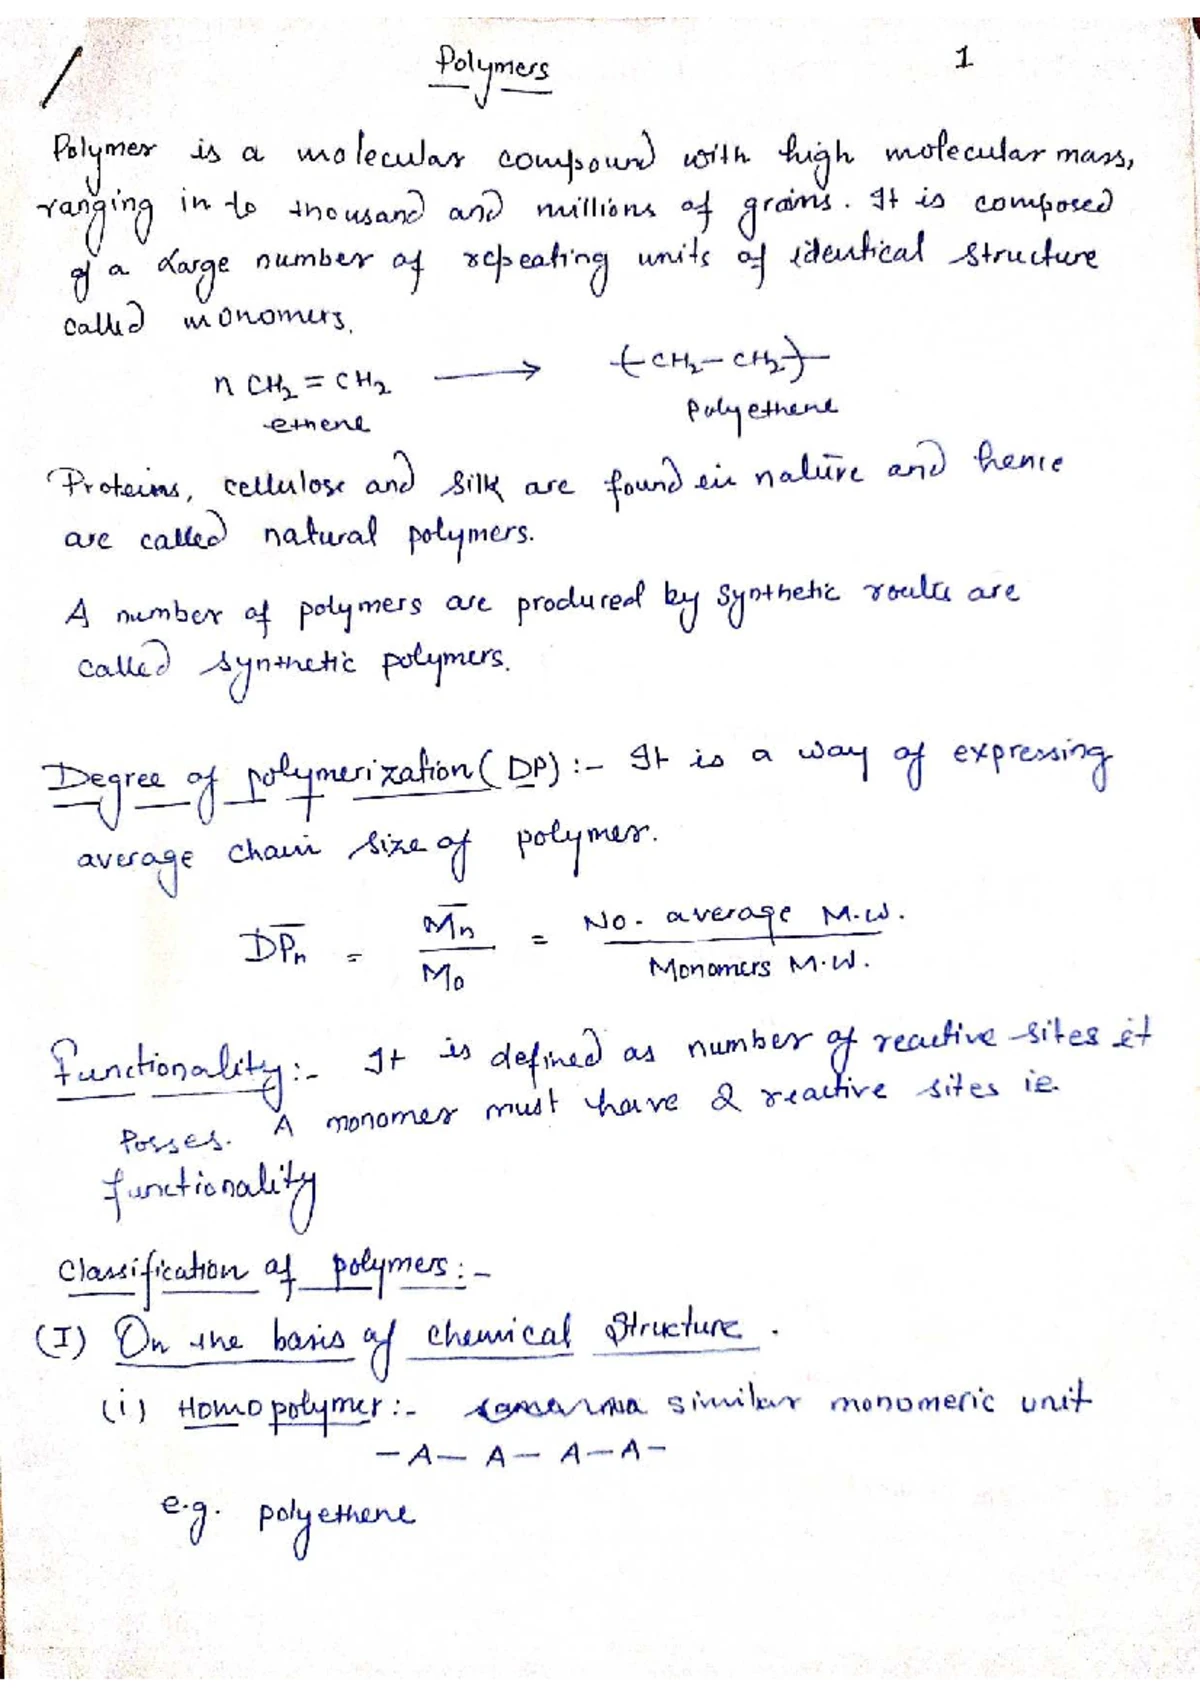 Polymers
1
Polymer is a molecular compound with high molecular mass,
ranging in to thousand and millions of grams. It is composed
of a large number of repeating units of identical structure
called monomers.
n CH₂ = CH₂ ⟶ -(CH₂-CH₂)-
ethene polyethene
Proteins, cellulose and silk are found in nature and hence
are called natural polymers.
A number of polymers are produced by synthetic routes are
called synthetic polymers.
Degree of polymerization (DP) :- It is a way of expressing
average chain size of polymer.
D̅P̅ₙ = M̅ₙ / M₀ = No. average M.W. / Monomers M.W.
Functionality:- It is defined as number of reactive sites it
posses. A monomer must have 2 reactive sites ie.
functionality
Classification of polymers:-
(I) On the basis of chemical structure.
(i) Homopolymer:- similar monomeric unit
-A-A-A-A-
e.g. polyethene